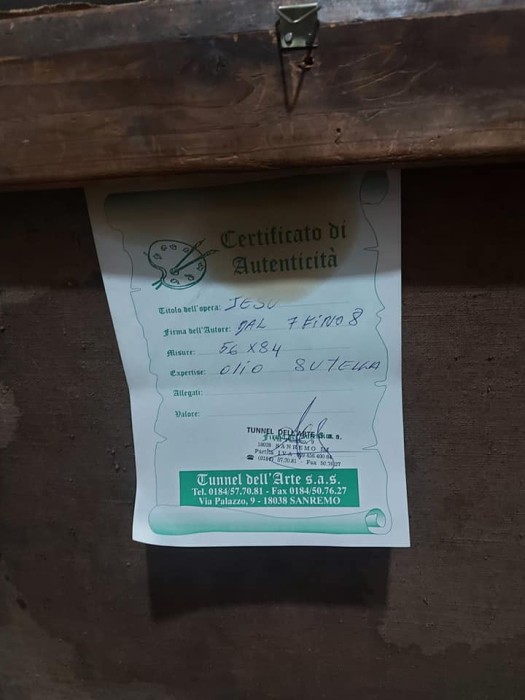 Certificato di
Autenticità
Titolo dell'opera: JESU
Firma dell'Autore: DAL 7 FINO 8
Misure: 56 X 84
Expertise: Olio SU TELLA
Allegati:
Valore:
TUNNEL DELL'ARTE s.a.s.
18038 SANREMO IM
Partita IVA
☎ (0184) 57.70.81 - Fax 50.76.27
Tunnel dell'Arte s.a.s.
Tel. 0184/57.70.81 - Fax 0184/50.76.27
Via Palazzo, 9 - 18038 SANREMO